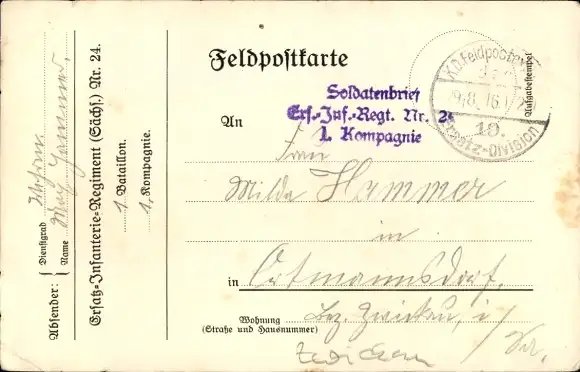 Absender:
Dienstgrad
Name
Max Hammer.
Ersatz-Infanterie-Regiment (Sächs.) Nr. 24.
1 Bataillon.
1. Kompagnie.
Feldpostkarte
Soldatenbrief
Ers.-Inf.-Regt. Nr. 24
1. Kompagnie
K.D. Feldpostex
19.8.16.
19.
Ersatz-Division
Aufgabestempel
An
Frau
Milda Hammer
in
in Ortmannsdorf,
Bez. Zwickau, i/
Wohnung
(Straße und Hausnummer)
Sa.
Zwickau